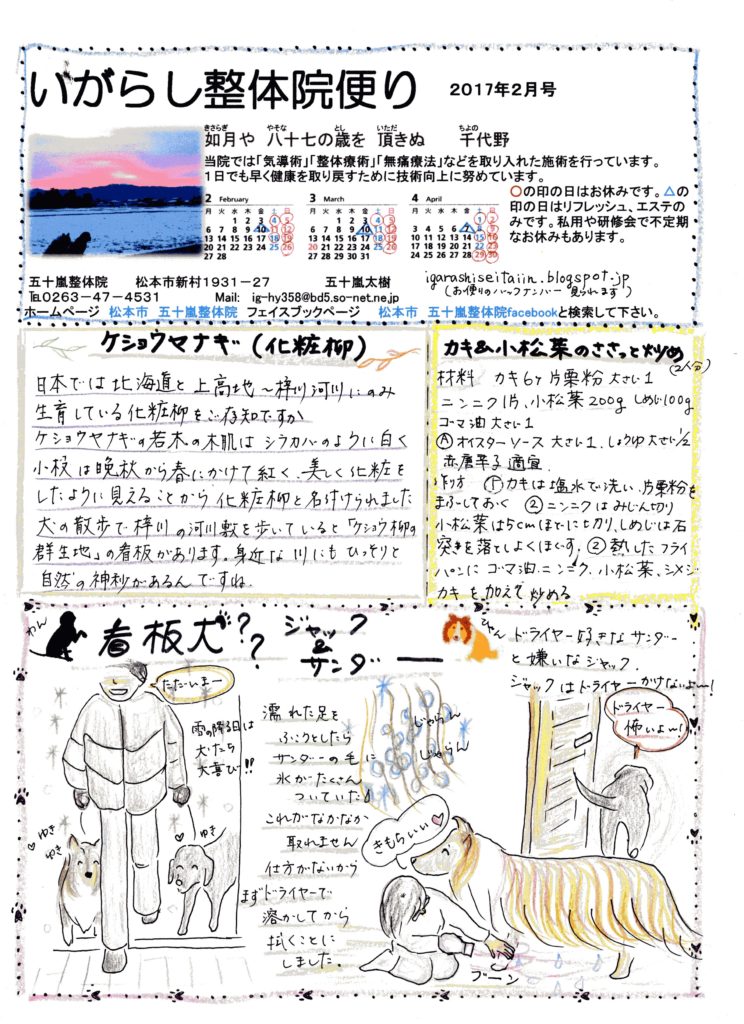 いがらし整体院便り 2017年2月号
きさらぎ やそな とし いただ ちよの
如月や 八十七の歳を 頂きぬ 千代野
当院では「気導術」「整体療術」「無痛療法」などを取り入れた施術を行っています。
1日でも早く健康を取り戻すために技術向上に努めています。
2 February
月 火 水 木 金 土 日
1 2 3 4 5
6 7 8 9 10 11 12
13 14 15 16 17 18 19
20 21 22 23 24 25 26
27 28
3 March
月 火 水 木 金 土 日
1 2 3 4 5
6 7 8 9 10 11 12
13 14 15 16 17 18 19
20 21 22 23 24 25 26
27 28 29 30 31
4 April
月 火 水 木 金 土 日
1 2
3 4 5 6 7 8 9
10 11 12 13 14 15 16
17 18 19 20 21 22 23
24 25 26 27 28 29 30
○の印の日はお休みです。△の
印の日はリフレッシュ、エステの
みです。私用や研修会で不定期
なお休みもあります。
五十嵐整体院 松本市新村1931-27 五十嵐太樹
℡0263-47-4531 Mail: ig-hy358@bd5.so-net.ne.jp
igarashiseitaiin.blogspot.jp
(お便りのバックナンバー見られます)
ホームページ 松本市 五十嵐整体院 フェイスブックページ 松本市 五十嵐整体院facebookと検索して下さい。
ケショウマナギ(化粧柳)
日本では北海道と上高地〜梓川河川にのみ
生育している化粧柳をご存知ですか
ケショウヤナギの若木の木肌はシラカバのように白く
小枝は晩秋から春にかけて紅く、美しく化粧を
したように見えることから化粧柳と名付けられました
犬の散歩で梓川の河川敷を歩いていると「ケショウ柳の
群生地」の看板があります。身近な川にもひっそりと
自然の神秘があるんですね。
カキ&小松菜のささっと炒め
(2人分)
材料 カキ6ヶ 片栗粉 大さじ1
ニンニク1片、小松菜200g しめじ100g
ゴマ油 大さじ1
Ⓐオイスターソース 大さじ1、しょうゆ大さじ1/2
赤唐辛子 適宜
作り方 ①カキは塩水で洗い、片栗粉を
まぶしておく ②ニンニクはみじん切り
小松菜は5cmほどに切り、しめじは石
突きを落としよくほぐす。②熱したフライ
パンにゴマ油、ニンニク、小松菜、シメジ
カキを加えて炒める
わん
看板犬?? ジャック
&
サンダー
わん
ドライヤー好きなサンダー
と嫌いなジャック。
ジャックはドライヤーかけないよ〜!
ただいまー
雪の降る日は
犬たち
大喜び!!
ゆき
ゆき
ゆき
濡れた足を
ふこうとしたら
サンダーの毛に
氷がたくさん
ついていた
これがなかなか
取れません
仕方がないから
まずドライヤーで
溶かしてから
拭くことに
しました。
じゃらん
じゃらん
ドライヤー
怖いよ〜!
きもちいい
ブーン